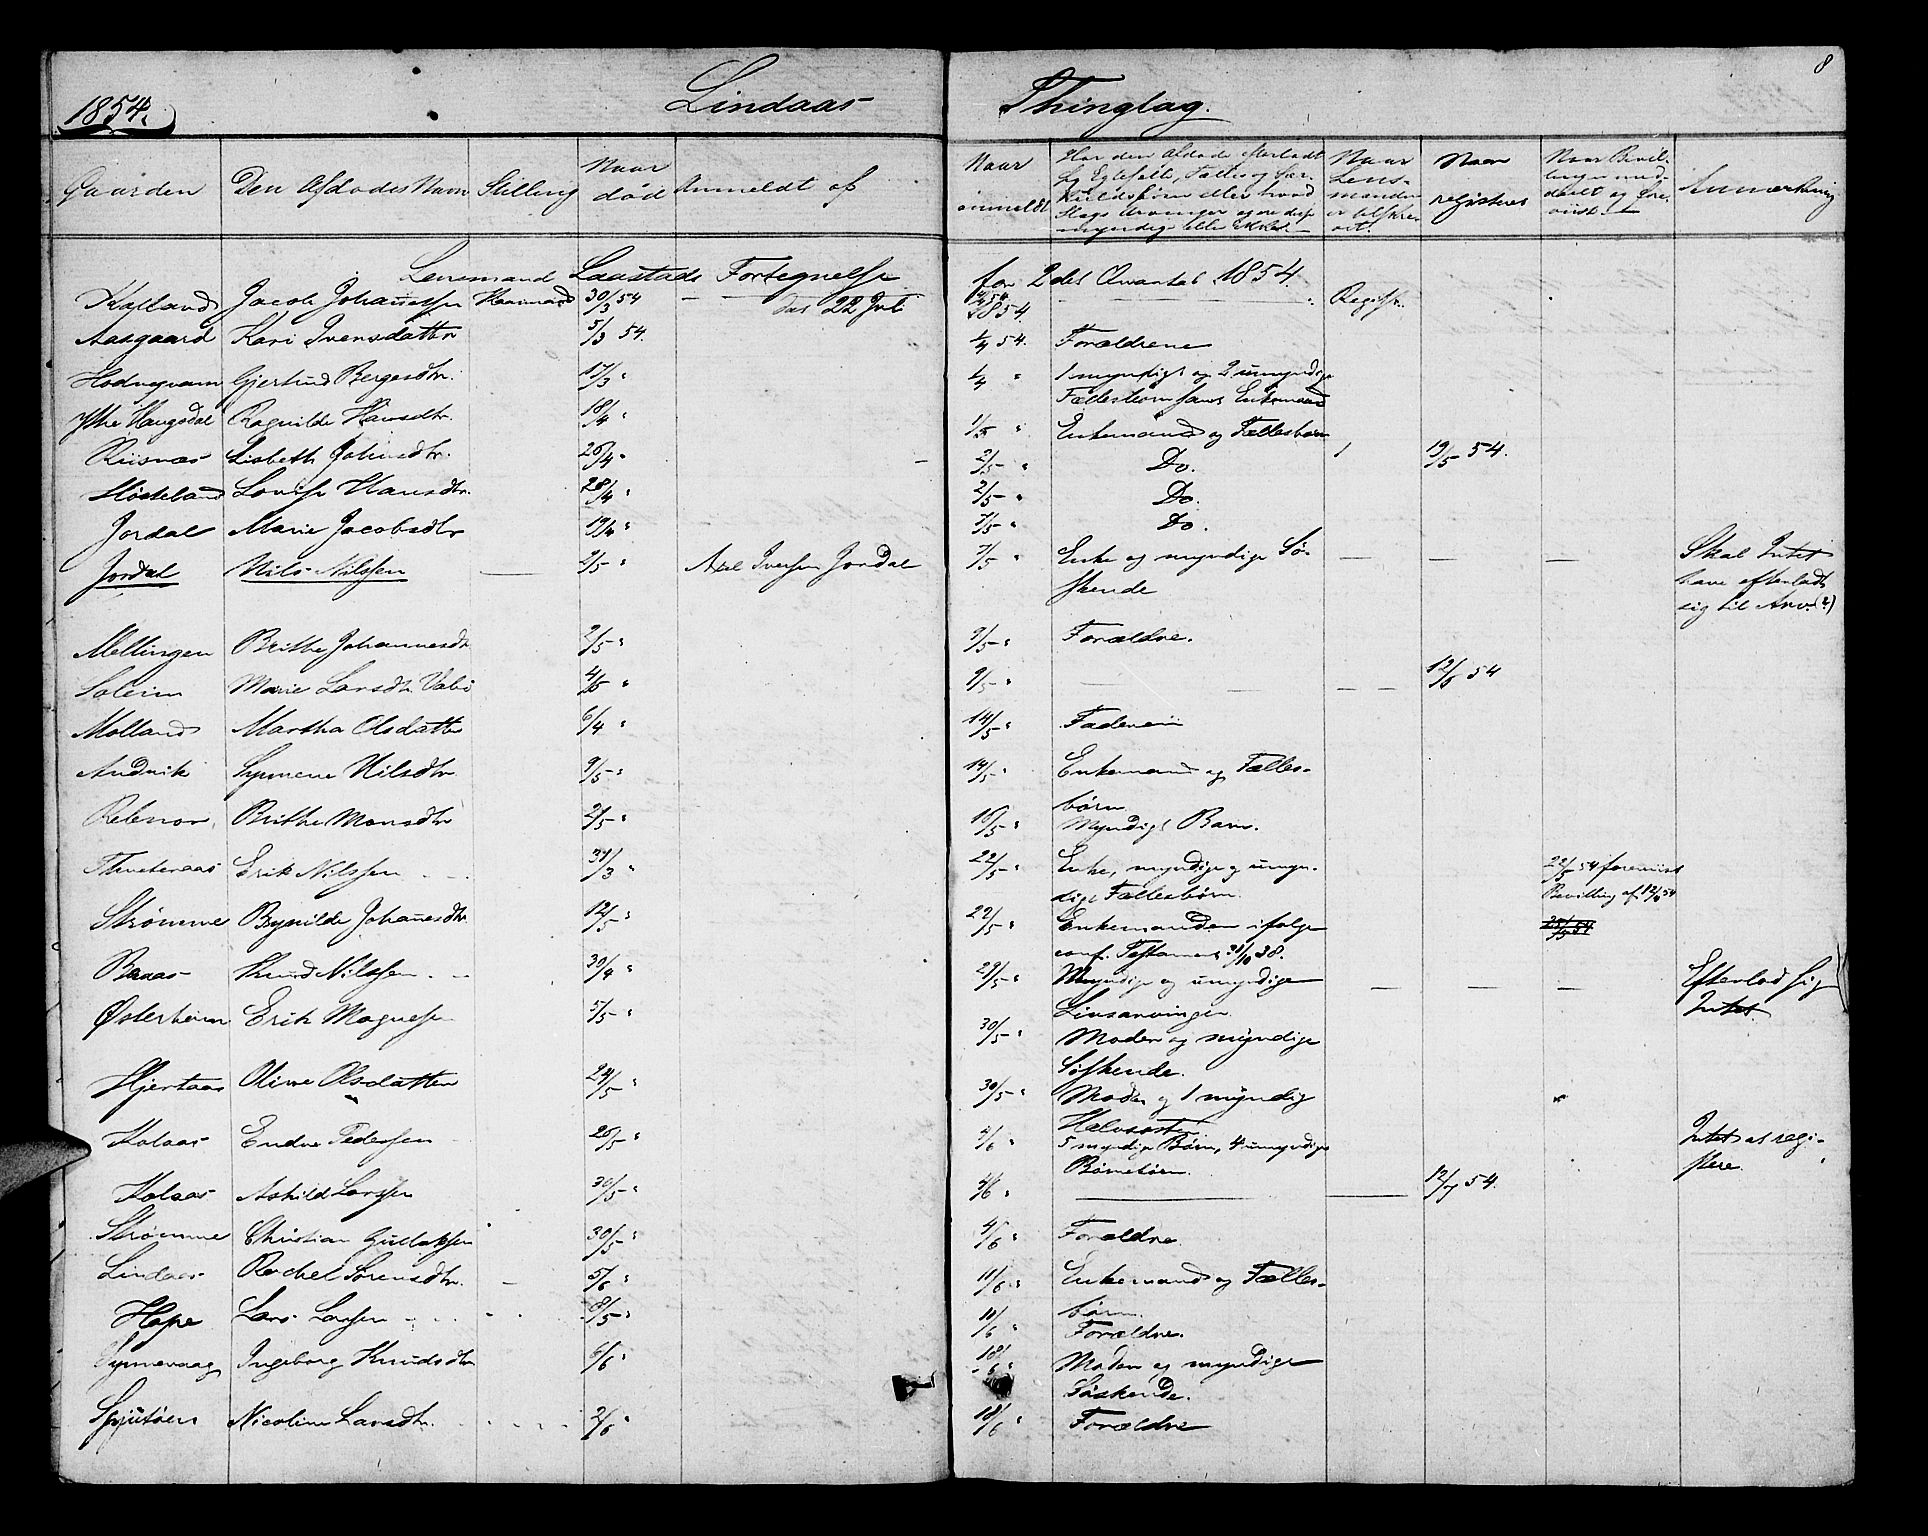 8
1854.
Lindaas Thinglag.
Gaarden Den Afdødes Navn Stilling Naar død Anmeldt af Naar anmeldt Har den Afdøde efterladt sig Egtefælle, Fælles og Sær-kuldsbørn eller hvad Slags Arvinger og ere disse myndige eller ikke Naar Lens-manden er tilskre-vet Naar registeret Naar Bevil-lingen med-deelt og fore-viist Anmærkning
Lensmand Laastads Fortegnelse for 2det Qvartal 1854.
das 22 Juli 1854
Kolland Jacob Johannessen 30/3 54 Regist.
Aasgaard Kari Iversdatter 5/3 54. 1/4 54. Forældrene
Hodnequam Gjertrud Bergesdtr. 17/3 " 1/4 " 1 myndigt og 2 umyndige
Fællesbørn samt Enkemand
Ytre Haugsdal Ragnilde Hansdtr. 18/4 " 1/5 " Enkemand og Fællesbørn
Riisnæs Lisbeth Johnsdtr. 26/4 " 2/5 " Do. 19/5 54.
Høskeland Lovise Hansdtr. 28/4 " 2/5 " Do.
Jordal Marie Jacobsdtr 19/4 " 7/5 " Do.
Jordal Nils Nilssen — 2/5 " Axel Iversen Jordal 7/5 " Enke og myndige Sø- — — — Skal Intet
skende have efterladt
sig til Arv. (?)
Mellingen Brithe Johannesdtr 2/5 " 9/5 " Forældre.
Soleim Marie Larsdtr 4/5 " 9/5 " — — — 12/6 54
Molland Martha Olsdatter 6/4 " 14/5 " Faderen
Andvik Synneve Nilsdtr 9/5 " 14/5 " Enkemand og Fælles-
børn
Brithe Monsdtr 2/5 " 16/5 " Myndigt Barn.
Erik Nilssen 31/3 " 22/5 " Enke, myndige og umyn- 22/5 54 foreviist
dige Fællesbørn. Bevilling af 12/5 54
Strømme Brynilde Johannesdtr. 12/5 " 22/5 " Enkemanden ifølge
conf. Testament 31/10 38.
Baaas Knud Nilssen 30/4 " 29/5 " Myndige og umyndige — — — Efterlod sig
Livsarvinger. Intet.
Østerheim Erik Magnesen 5/5 " 30/5 " Moder og myndige
Søskende.
Hjertaas Oline Olsdatter 24/5 " 30/5 " Moder og 1 myndig
Halvsøster
Kolaas Endre Pedersen 26/5 " 4/6 " 5 myndige Børn, 4 umyndige Intet at regi-
Børnebørn. stere.
Kolaas Askild Larssen 30/5 " 4/6 " — — 12/7 54.
Strømme Christian Gullaksen 30/5 " 4/6 " Forældre.
Lindaas Rachel Sørensdtr. — 5/6 " 11/6 " Enkemand og Fælles-
børn.
Hope Lars Larsen 8/5 " 11/6 " Forældre.
Synnevaag Ingeborg Knudsdtr 6/6 " 18/6 " Moder og myndige
Søskende.
Nicoline Larsdtr. 2/6 " 18/6 " Forældre